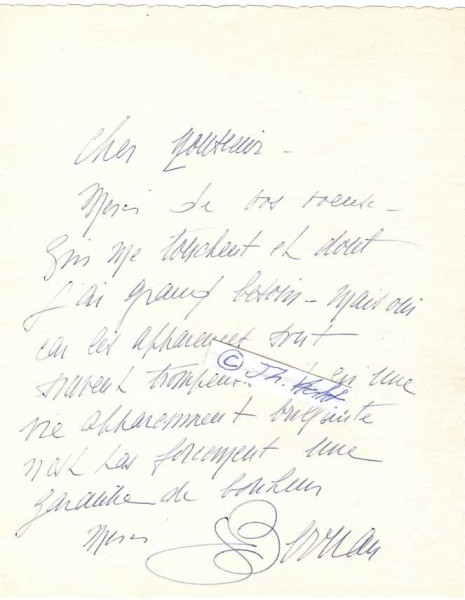 Cher Monsieur -
Merci de vos voeux -
Qui me touchent et dont
j'ai grand besoin - Mais oui
car les apparences sont
souvent trompeus
© Th. une
vie apparemment brillante
n'est pas forcement une
garantie de bonheur
Merci